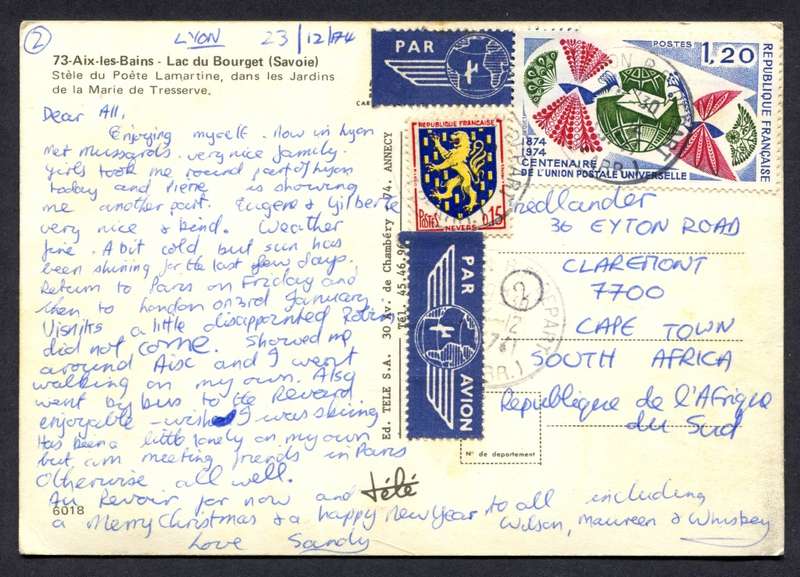 2
LYON 23/12/74
73-Aix-les-Bains - Lac du Bourget (Savoie)
Stèle du Poête Lamartine, dans les Jardins
de la Marie de Tresserve.
Dear All,
Enjoying myself. Now in Lyon
met Mussards. very nice family.
Girls took me round part of Lyon
today and Irene is showing
me another part. Eugene & Gilberte
very nice & kind. Weather
fine. A bit cold but sun has
been shining for the last few days.
Return to Paris on Friday and
then to London on 3rd January.
a little disappointed Robin
did not come. Showed me
around Aix and I went
walking on my own. Also
went by bus to the Revard
enjoyable - wish I was skiing
Has been a little lonely on my own
but am meeting friends in Paris
Otherwise all well.
Au Revoir for now and
a Merry Christmas & a happy New Year to all including
Wilson, Maureen & Whiskey
Love Sandy
6018
télé
Ed. TELE S.A. 30 Av. de Chambéry 74. ANNECY
Tél. 45.46.96
PAR
REPUBLIQUE FRANÇAISE
POSTES 0,15
NEVERS
PAR AVION
POSTES 1,20
REPUBLIQUE FRANÇAISE
1874
1974
CENTENAIRE
DE L'UNION POSTALE UNIVERSELLE
DEPART
2
12
74
(RR.)
redlander
36 EYTON ROAD
CLAREMONT
7700
CAPE TOWN
SOUTH AFRICA
Republique de l'Afrique
du Sud
N° de département